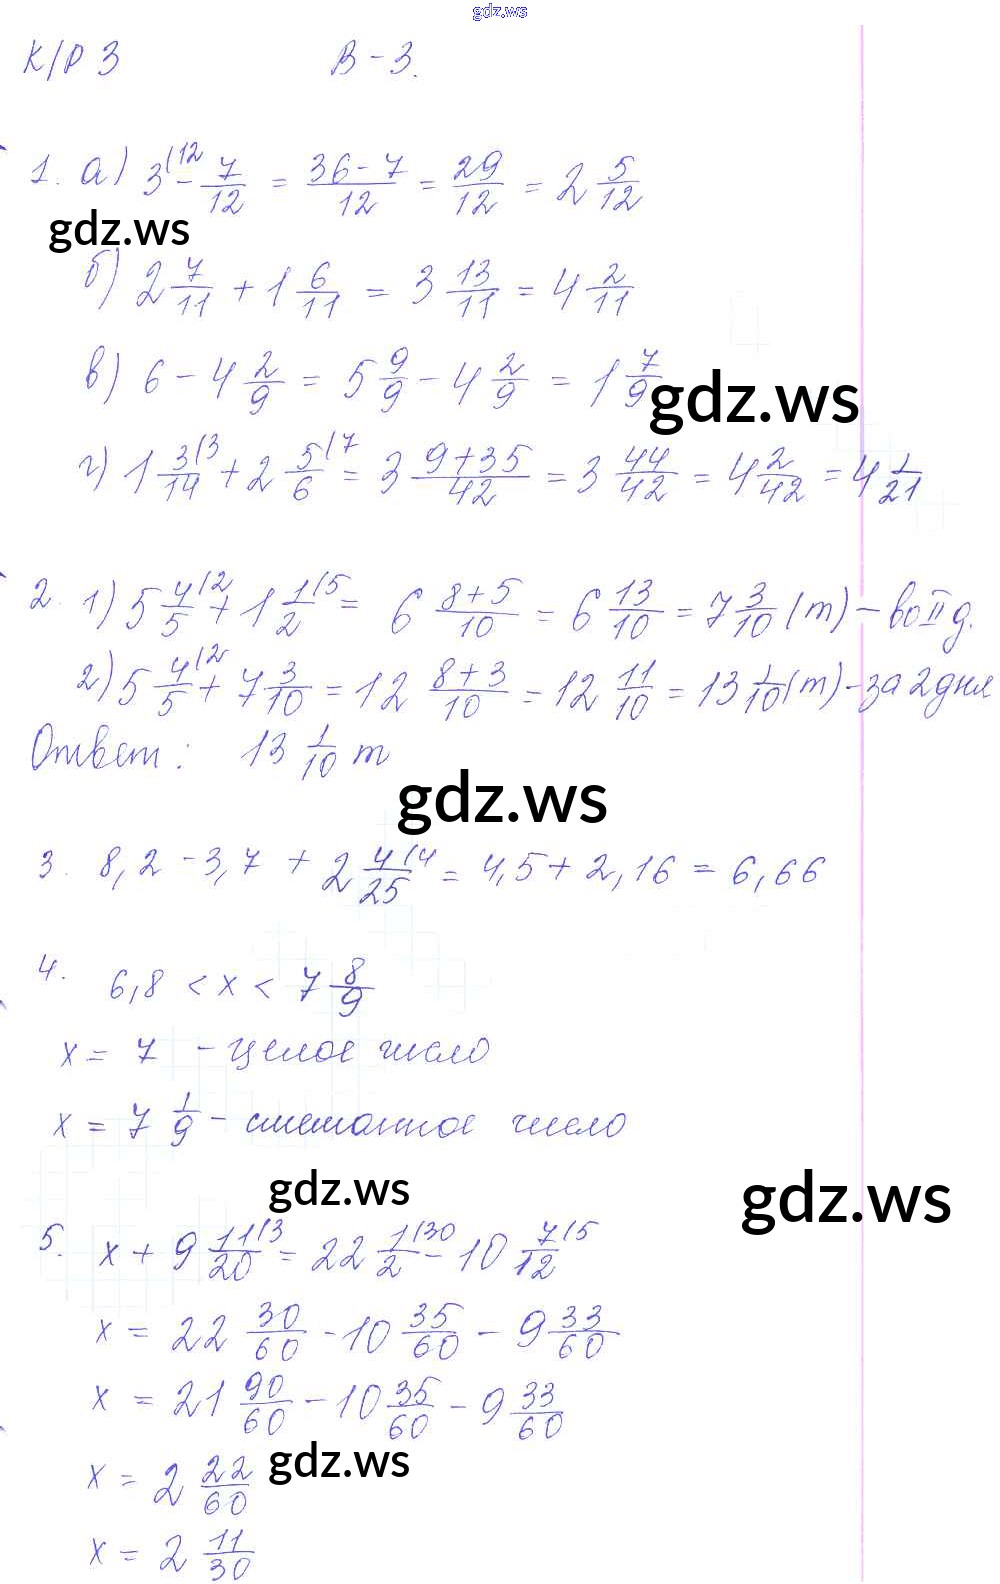 gdz.ws
К/Р 3 В-3.
1. а) 3 (12 - 7/12 = (36-7)/12 = 29/12 = 2 5/12
gdz.ws
б) 2 7/11 + 1 6/11 = 3 13/11 = 4 2/11
в) 6 - 4 2/9 = 5 9/9 - 4 2/9 = 1 7/9
gdz.ws
г) 1 3/14 (3 + 2 5/6 (7 = 3 (9+35)/42 = 3 44/42 = 4 2/42 = 4 1/21
2. 1) 5 4/5 (2 + 1 1/2 (5 = 6 (8+5)/10 = 6 13/10 = 7 3/10 (т) - во II д.
2) 5 4/5 (2 + 7 3/10 = 12 (8+3)/10 = 12 11/10 = 13 1/10 (т) - за 2 дня
Ответ: 13 1/10 т
gdz.ws
3. 8,2 - 3,7 + 2 4/25 (4 = 4,5 + 2,16 = 6,66
4. 6,8 < x < 7 8/9
x = 7 - целое число
x = 7 1/9 - смешанное число
gdz.ws
gdz.ws
5. x + 9 11/20 (3 = 22 1/2 (30 - 10 7/12 (5
x = 22 30/60 - 10 35/60 - 9 33/60
x = 21 90/60 - 10 35/60 - 9 33/60
gdz.ws
x = 2 22/60
x = 2 11/30